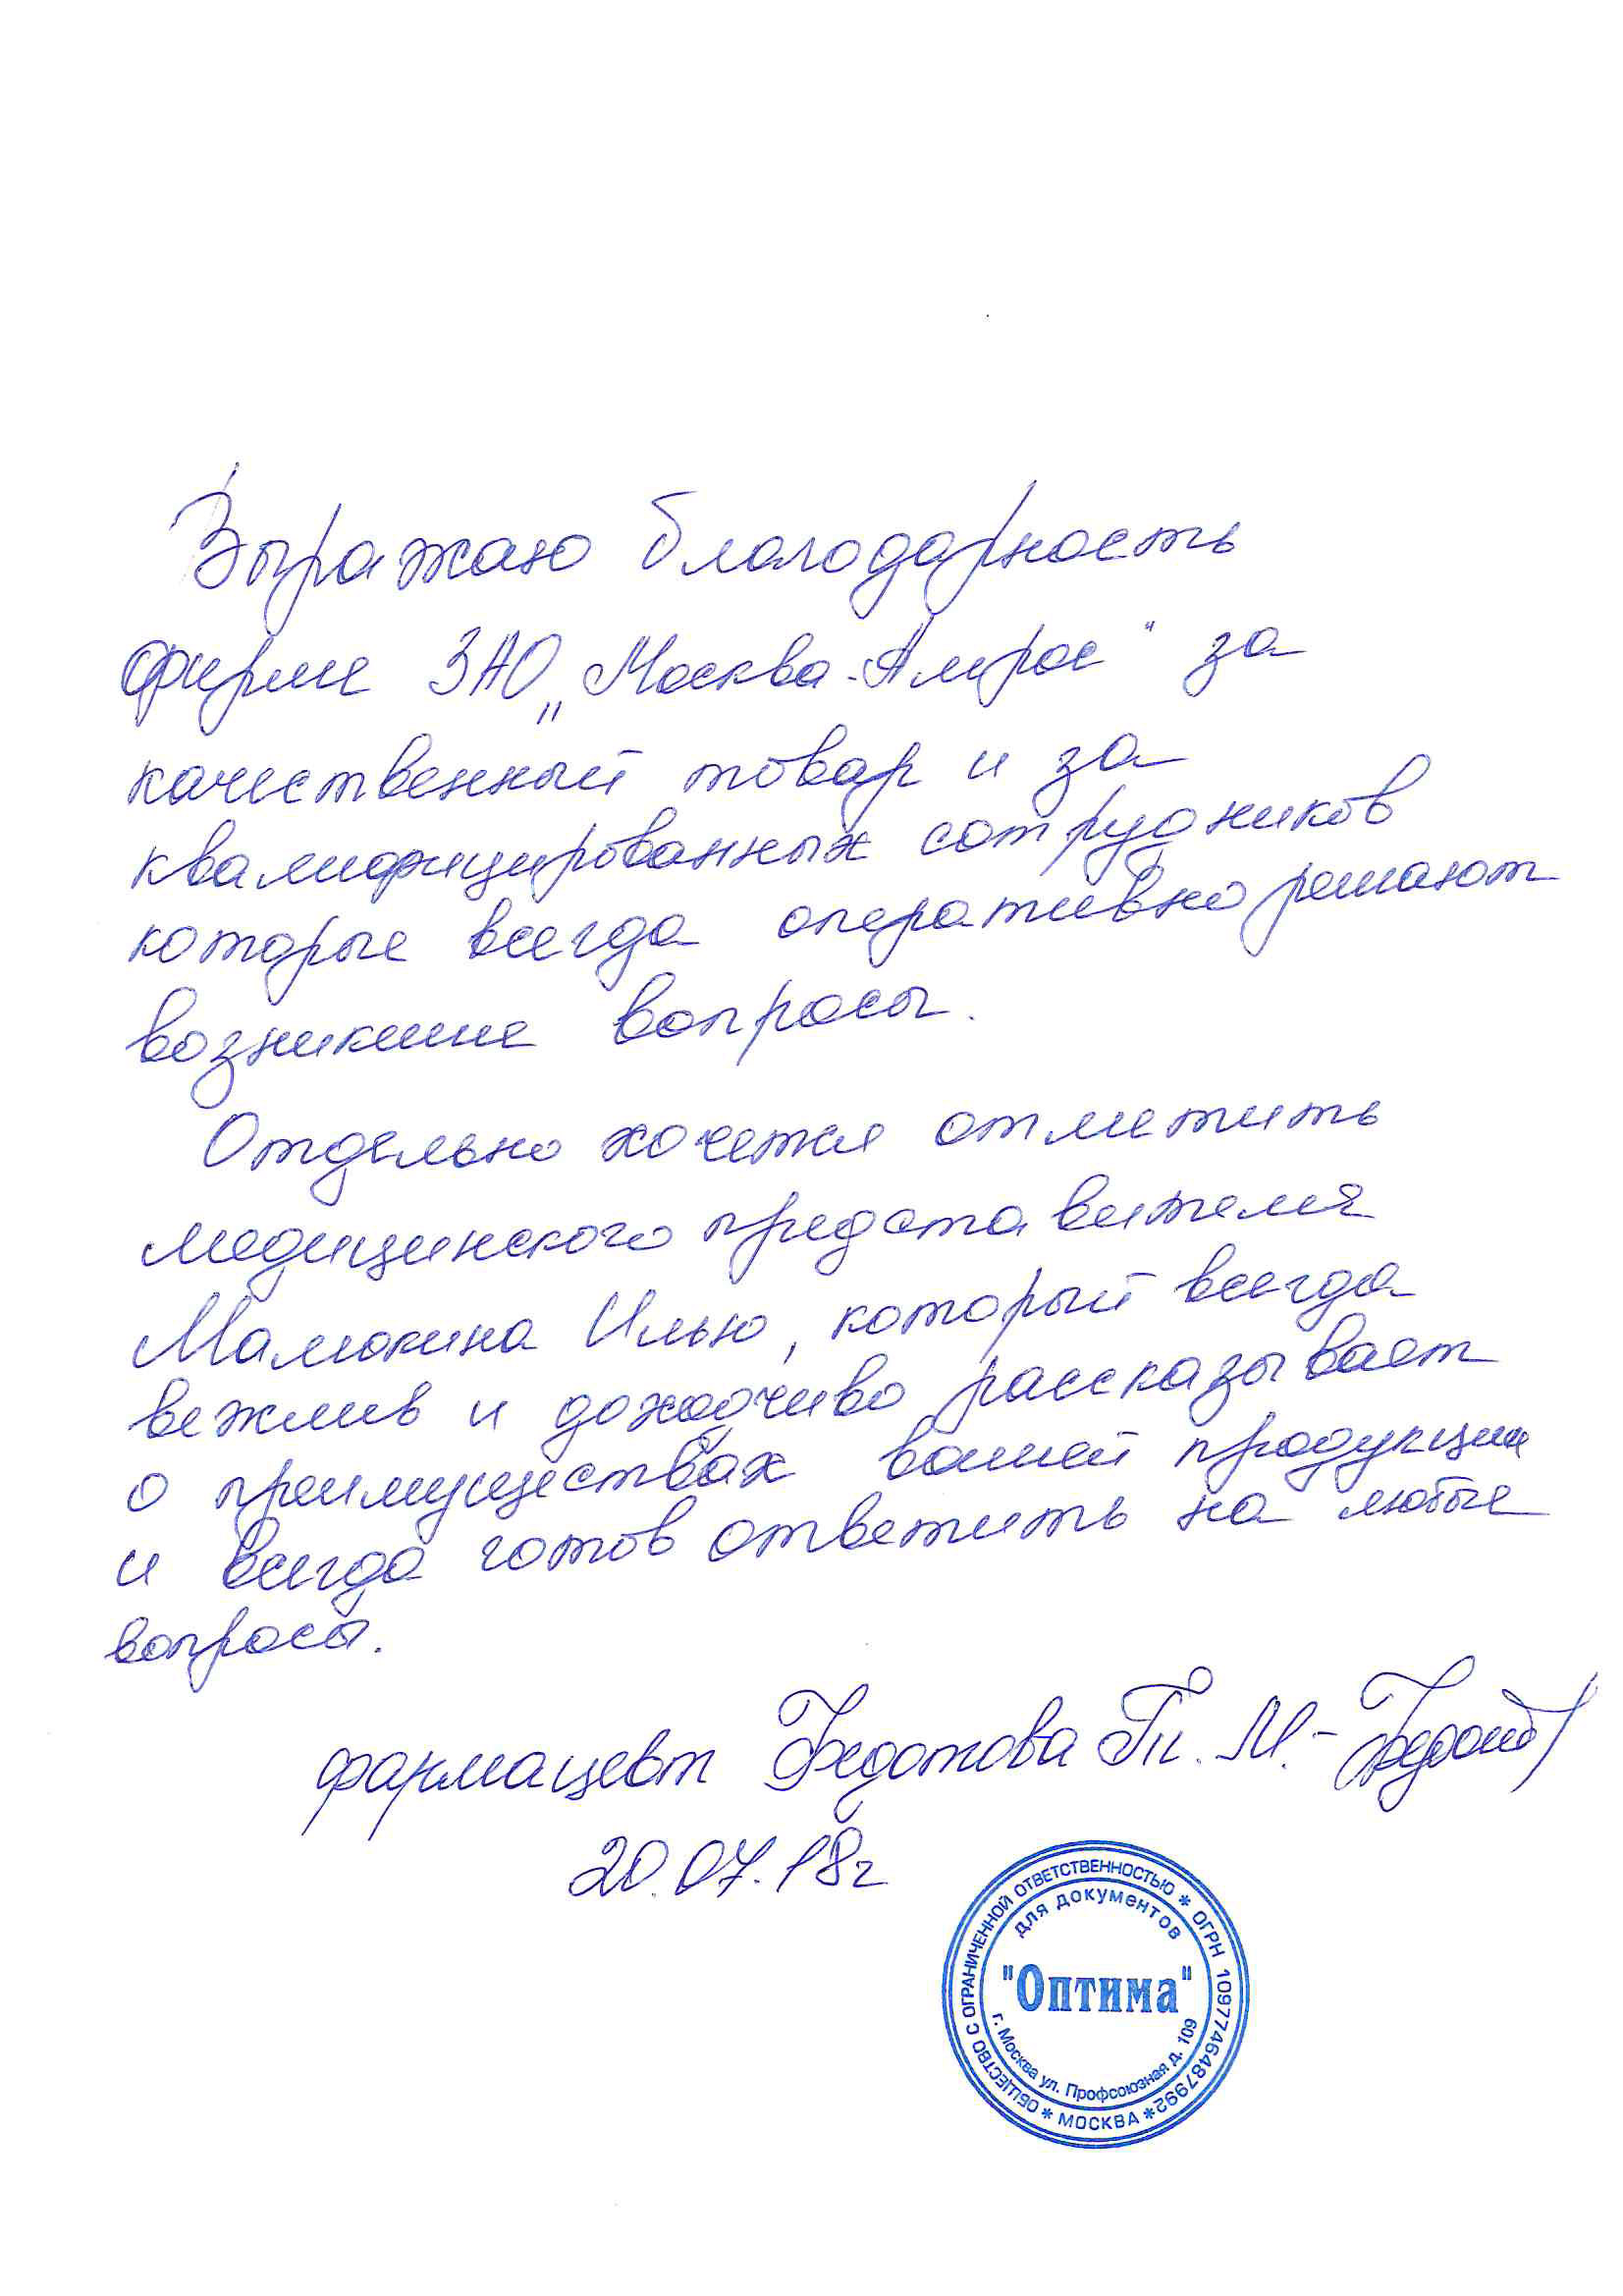 Выражаю благодарность
фирме ЗАО „Москва-Амрос" за
качественный товар и за
квалифицированных сотрудников
которые всегда оперативно решают
возникшие вопросы.
Отдельно хочется отметить
медицинского представителя
Мамюкина Илью, который всегда
вежлив и доходчиво рассказывает
о преимуществах вашей продукции
и всегда готов ответить на любые
вопросы.
фармацевт Федотова М.
20.07.18г
ОБЩЕСТВО С ОГРАНИЧЕННОЙ ОТВЕТСТВЕННОСТЬЮ * ОГРН 1097746487992 * МОСКВА *
для документов
"Оптима"
г. Москва ул. Профсоюзная д. 109